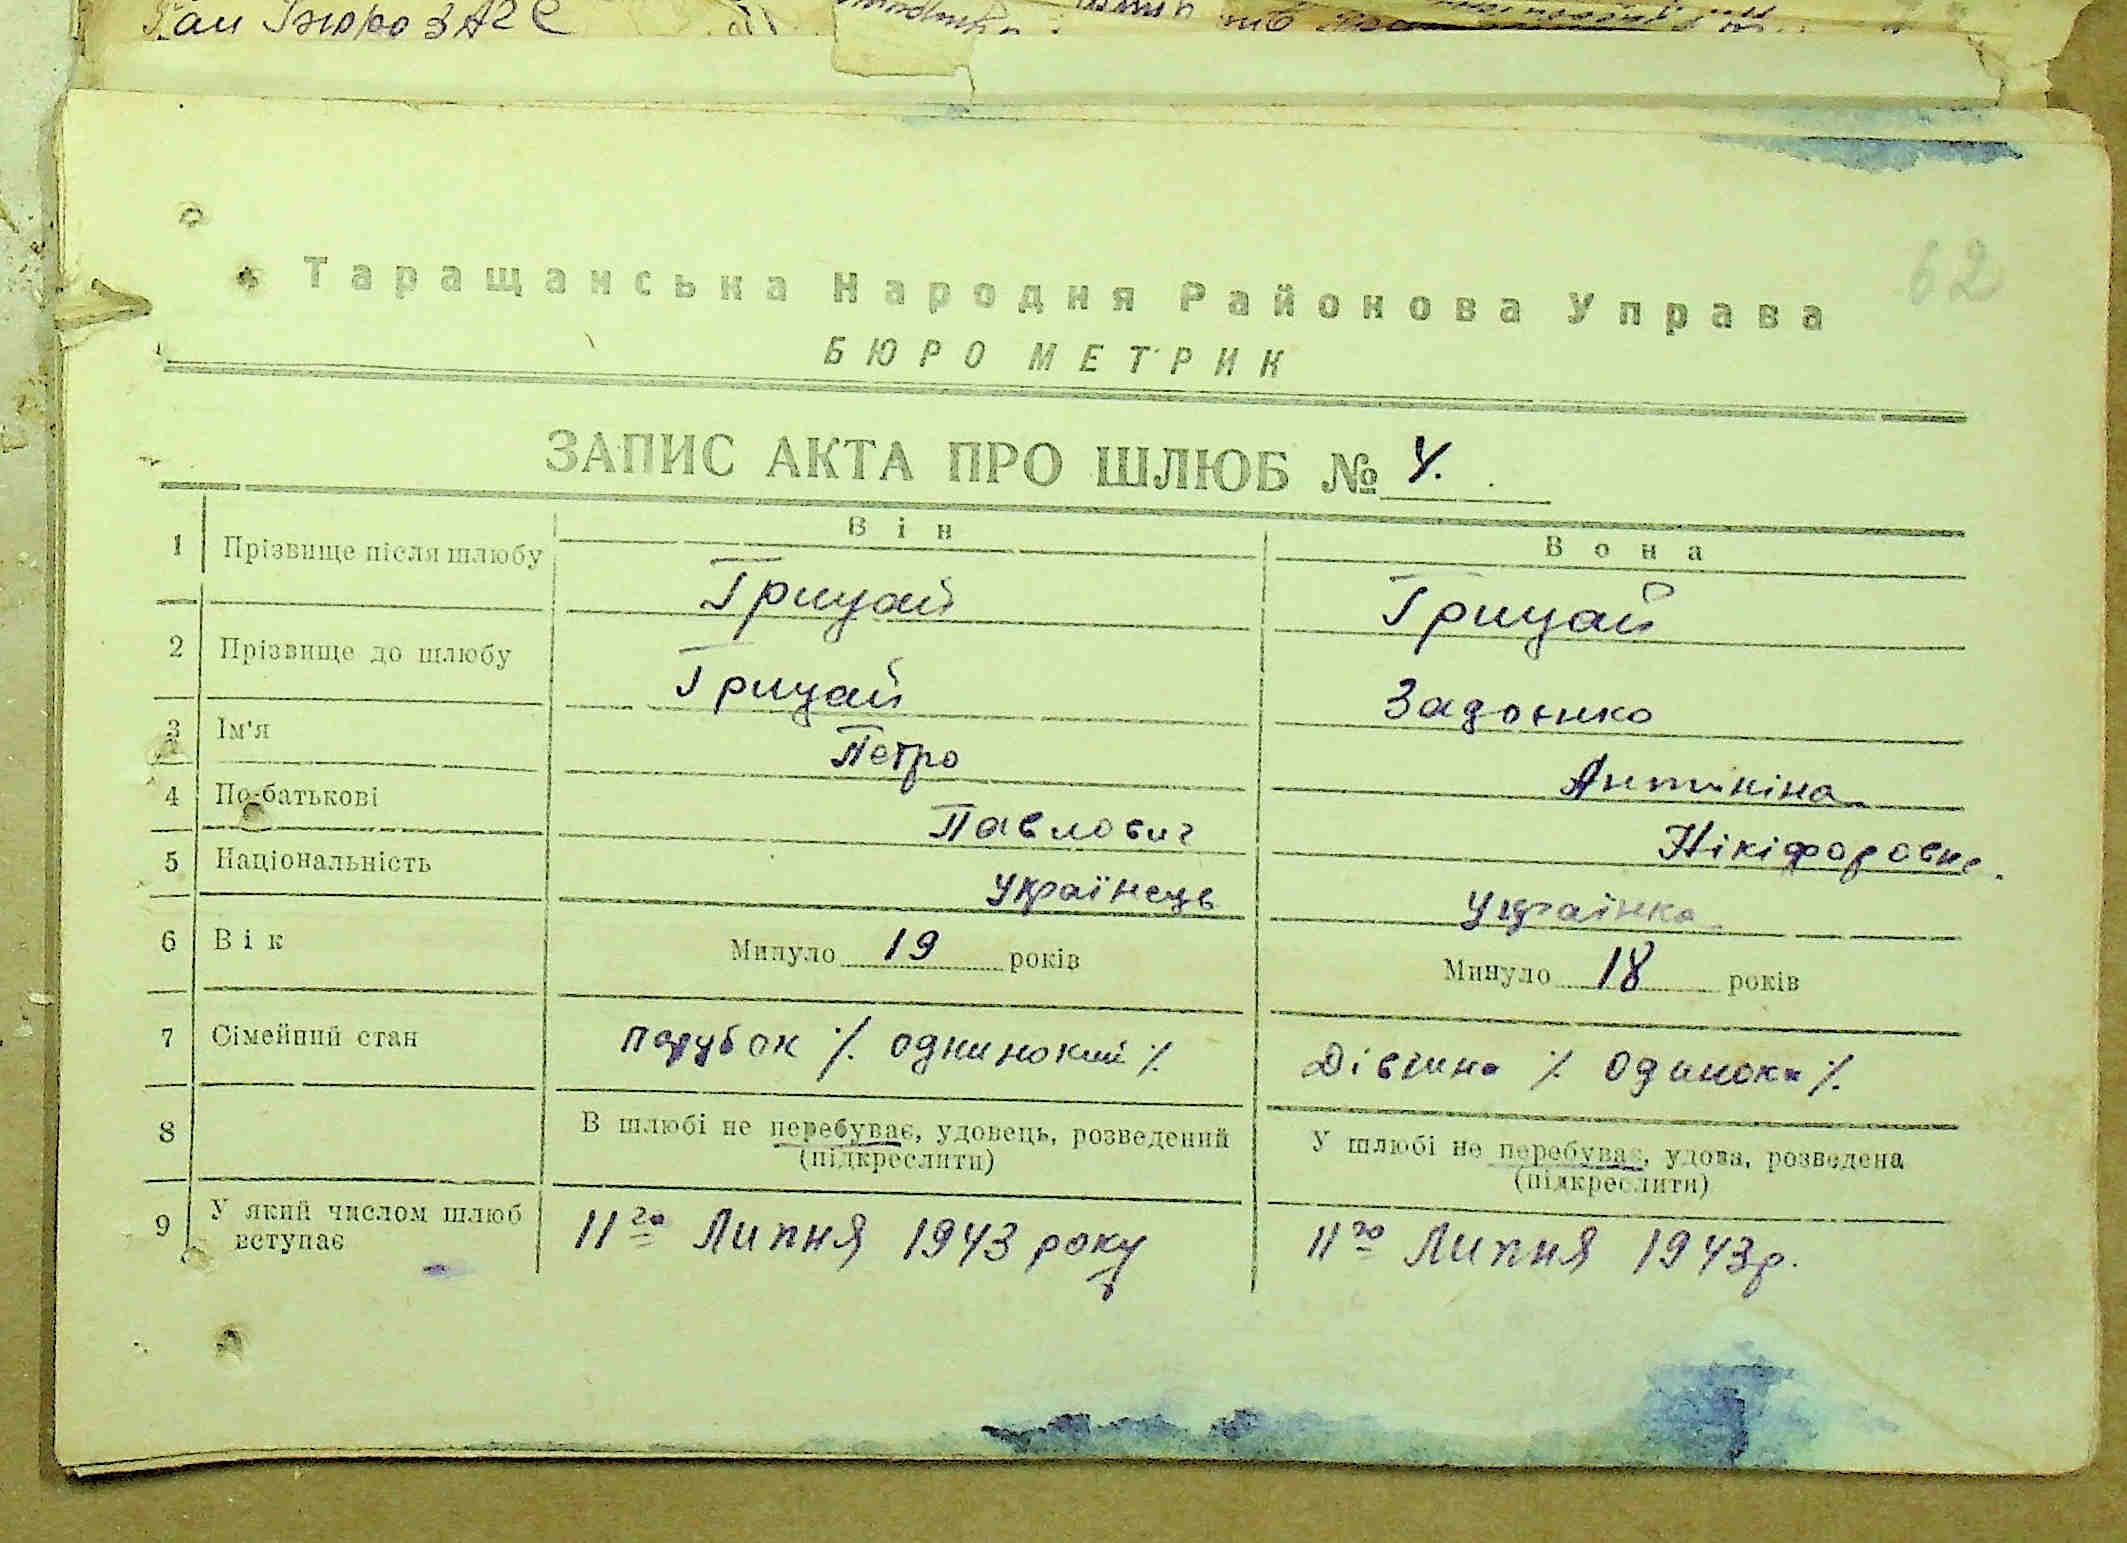 Рай Бюро ЗАГС
62
Таращанська Народня Районова Управа
БЮРО МЕТРИК
ЗАПИС АКТА ПРО ШЛЮБ № 4.
Він Вона
1 Прізвище після шлюбу Грицай Грицай
2 Прізвище до шлюбу Грицай Задоєнко
3 Ім'я Петро Антикіна
4 По-батькові Павлович Нікіфоровне.
5 Національність Українець Українка
6 Вік Минуло 19 років Минуло 18 років
7 Сімейний стан парубок /. однинокий /. Дівчина /. Одинока /.
8 В шлюбі не перебуває, удовець, розведений У шлюбі не перебуває, удова, розведена
(підкреслити) (підкреслити)
9 У який числом шлюб вступає 11го Липня 1943 року 11го Липня 1943р.